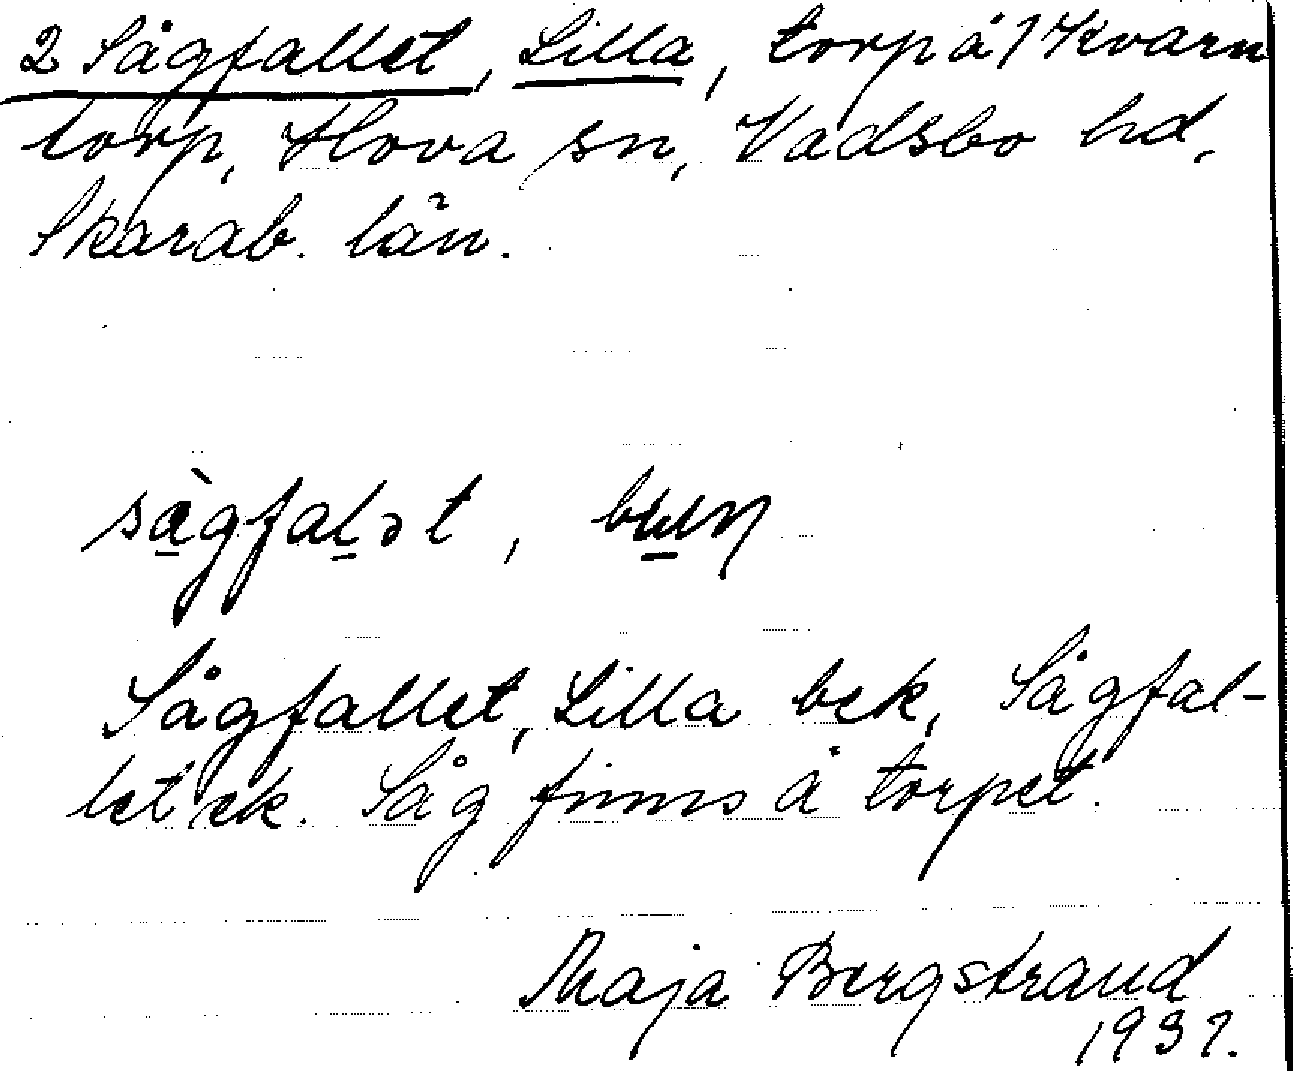 2 Sågfallet, Lilla, torp å 1 Kvarn
torp, Hova sn, Vadsbo hd,
Skarab. län.
sàgfalət,
Sågfallet, Lilla bek, Sågfal-
let ek. Såg finns å torpet.
Maja Bergstrand
1937.